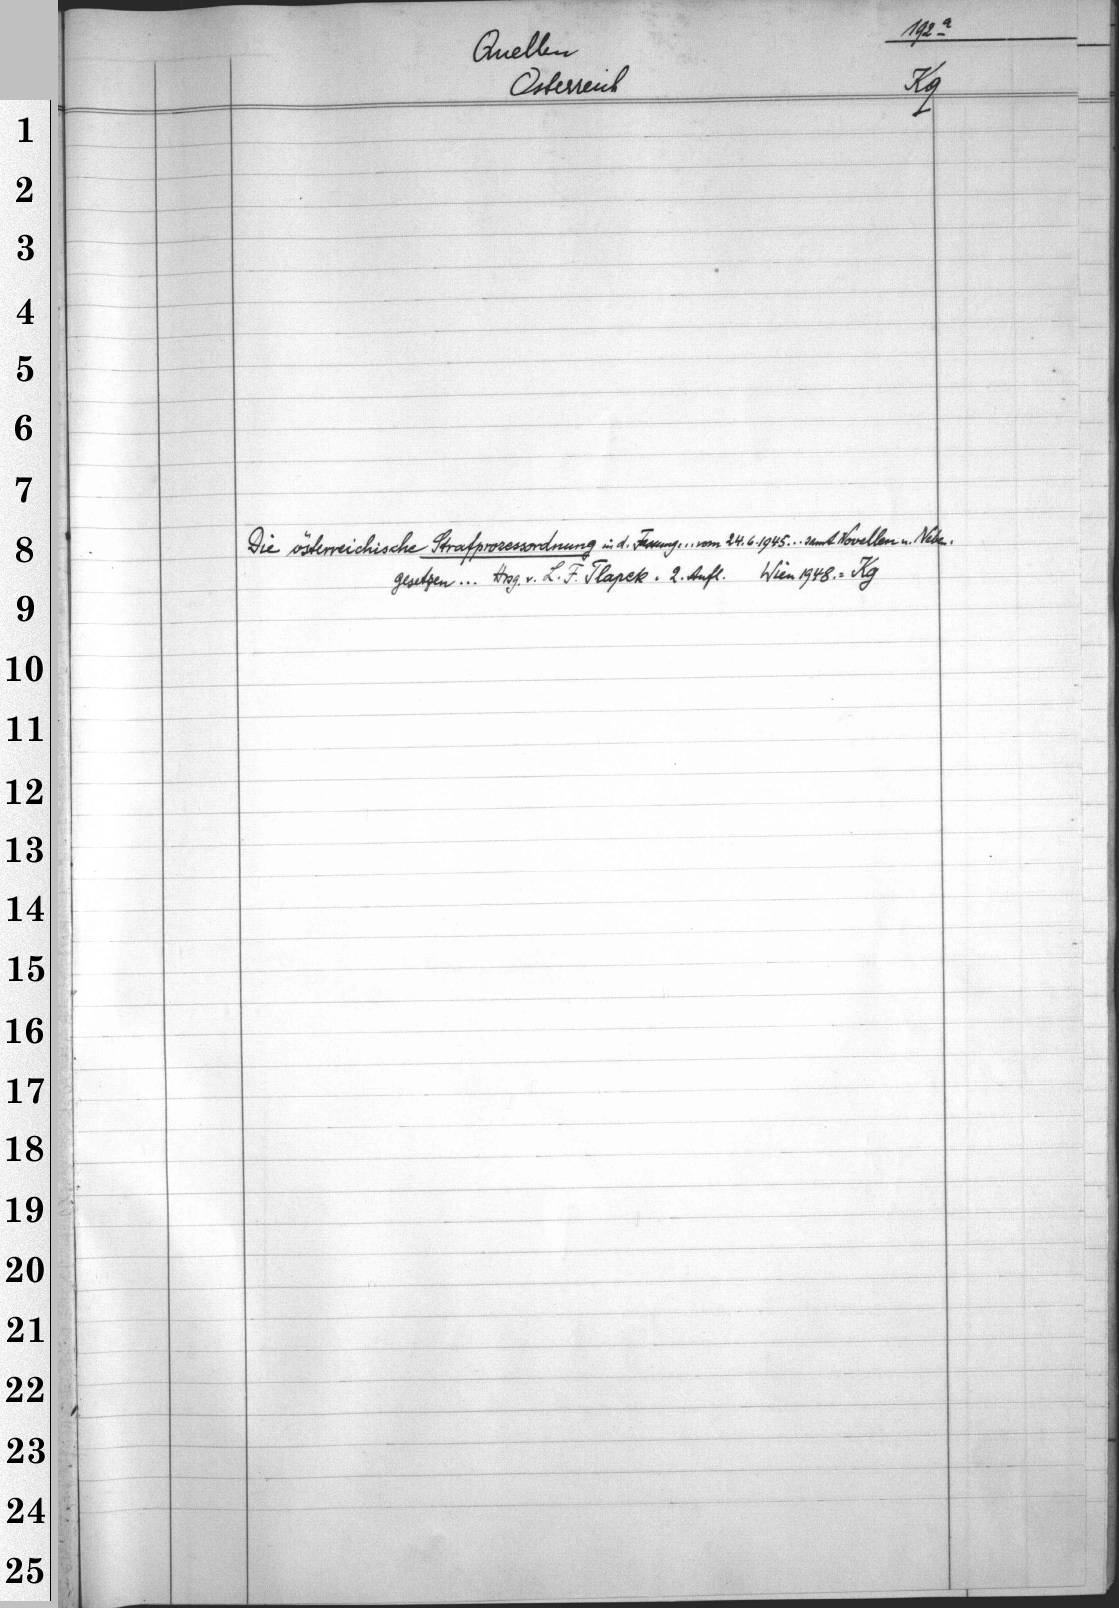 192a
Quellen
Österreich
Kg
1
2
3
4
5
6
7
8
Die österreichische Strafprozessordnung in d. Fassung... vom 24.6.1945... samt Novellen u. Neben-
gesetzen... Hrsg. v. L. F. Tlapek. 2. Aufl. Wien 1948. = Kg
9
10
11
12
13
14
15
16
17
18
19
20
21
22
23
24
25